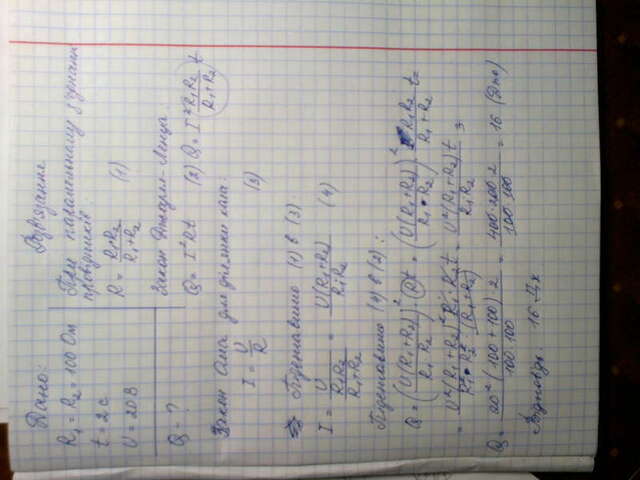 Дано:
R₁ = R₂ = 100 Ом
t = 2 с
U = 20 В
Q - ?
Розв'язання
При паралельному з'єднанні
провідників:
R = R₁R₂ / (R₁ + R₂) (1)
Закон Джоуля-Ленца:
Q = I²Rt (2) Q = I² R₁R₂ / (R₁ + R₂) t
Закон Ома для ділянки кола:
I = U / R (3)
Підставимо (1) в (3)
I = U / (R₁R₂ / (R₁ + R₂)) = U(R₁ + R₂) / R₁R₂ (4)
Підставимо (4) в (2):
Q = (U(R₁ + R₂) / R₁R₂)² Rt = (U(R₁ + R₂) / R₁R₂)² · R₁R₂ / (R₁ + R₂) t =
= U²(R₁ + R₂)² R₁R₂ t / R₁²R₂² (R₁ + R₂) = U²(R₁ + R₂)t / R₁R₂
Q = 20² (100 + 100) 2 / 100·100 = 400·200·2 / 100·100 = 16 (Дж)
Відповідь: 16 Дж